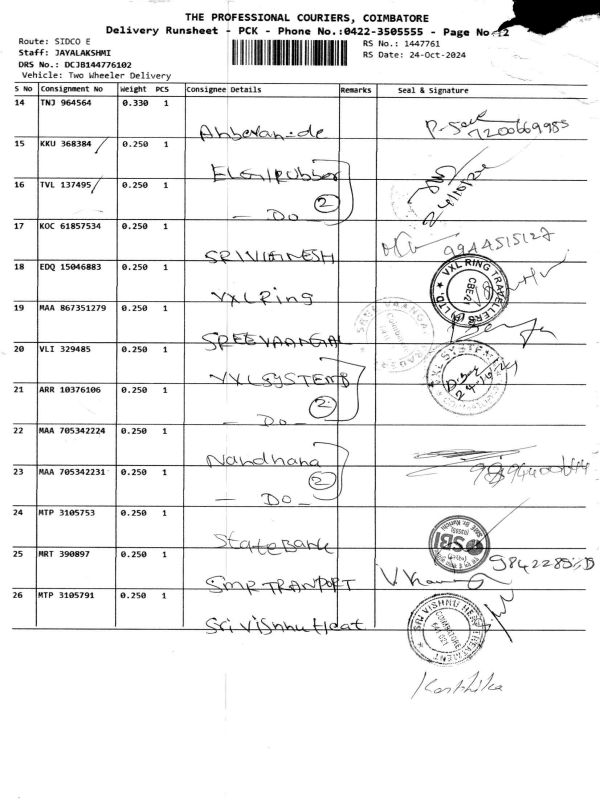 THE PROFESSIONAL COURIERS, COIMBATORE
Delivery Runsheet - PCK - Phone No.:0422-3505555 - Page No 2
Route: SIDCO E
RS No.: 1447761
Staff: JAYALAKSHMI
RS Date: 24-Oct-2024
DRS No.: DCJB144776102
Vehicle: Two Wheeler Delivery
S No Consignment No Weight PCS Consignee Details Remarks Seal & Signature
14 TNJ 964564 0.330 1
7200669985
15 KKU 368384 0.250 1
16 TVL 137495 0.250 1
2
— Do —
17 KOC 61857534 0.250 1
9944515127
18 EDQ 15046883 0.250 1
VXL Ring
VXL RING TRAVELLERS (P) LTD.
19 MAA 867351279 0.250 1
SREEVAANGAI
20 VLI 329485 0.250 1
VXL SYSTEMS
21 ARR 10376106 0.250 1
2
— Do —
22 MAA 705342224 0.250 1
Nandhana
23 MAA 705342231 0.250 1
2
— Do —
24 MTP 3105753 0.250 1
State Bank
SBI
25 MRT 390897 0.250 1
SMR TRANPORT
26 MTP 3105791 0.250 1
Sri Vishnu Heat
SRI VISHNU HEAT TREATMENT
Karthika